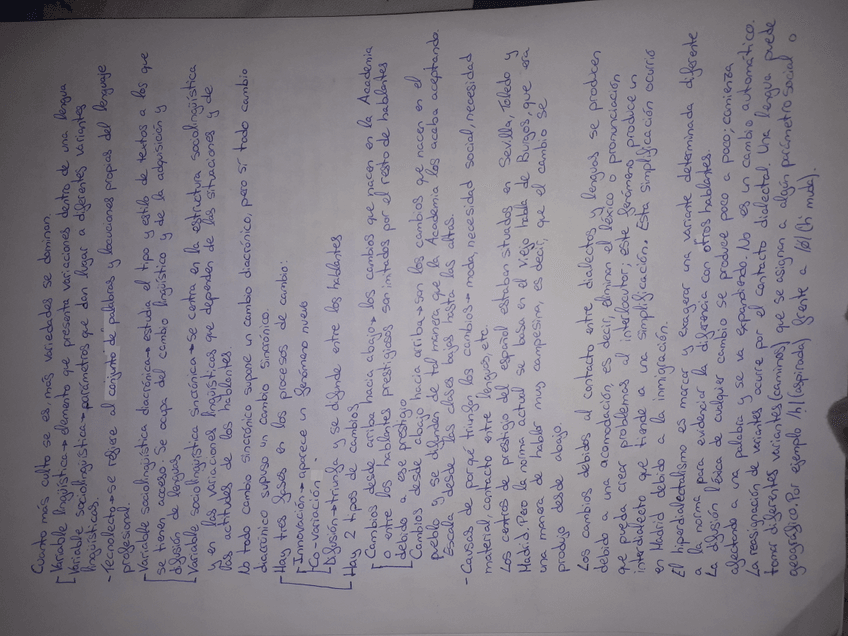 Cuanto más culto se es, más variedades se dominan.
Variable lingüística→ elemento que presenta variaciones dentro de una lengua
Variable sociolingüística→ parámetros que dan lugar a diferentes variantes
lingüísticas.
- Tecnolecto→ se refiere al conjunto de palabras y locuciones propias del lenguaje
profesional.
Variable sociolingüística diacrónica→ estudia el tipo y estilo de textos a los que
se tienen acceso. Se ocupa del cambio lingüístico y de la adquisición y
difusión de lenguas
Variable sociolingüística sincrónica→ se centra en la estructura sociolingüística
y en las variaciones lingüísticas que dependen de las situaciones y de
las actitudes de los hablantes
No todo cambio sincrónico supone un cambio diacrónico, pero sí todo cambio
diacrónico supuso un cambio sincrónico.
Hay tres fases en los procesos de cambio:
Innovación→ aparece un fenómeno nuevo
Co-variación
Difusión→ triunfa y se difunde entre los hablantes
Hay 2 tipos de cambios
Cambios desde arriba hacia abajo→ los cambios que nacen en la Academia
o entre los hablantes prestigiosos son imitados por el resto de hablantes
debido a ese prestigio
Cambios desde abajo hacia arriba→ son los cambios que nacen en el
pueblo y se difunden de tal manera que la Academia los acaba aceptando.
Escala desde las clases bajas hasta las altas.
- Causas de por qué triunfan los cambios→ moda, necesidad social, necesidad
material, contacto entre lenguas, etc.
Los centros de prestigio del español estaban situados en Sevilla, Toledo y
Madrid. Pero la norma actual se basa en el viejo habla de Burgos, que era
una manera de hablar muy campesina, es decir, que el cambio se
produjo desde abajo.
Los cambios debidos al contacto entre dialectos y lenguas se producen
debido a una acomodación, es decir, eliminan el léxico o pronunciación
que pueda crear problemas al interlocutor; este fenómeno produce un
interdialecto que tiende a una simplificación. Esta simplificación ocurrió
en Madrid debido a la inmigración.
El hiperdialectalismo es marcar y exagerar una variante determinada diferente
a la norma para evidenciar la diferencia con otros hablantes.
La difusión léxica de cualquier cambio se produce poco a poco; comienza
afectando a una palabra y se va expandiendo. No es un cambio automático.
La reasignación de variantes ocurre por el contacto dialectal. Una lengua puede
tomar diferentes variantes (caminos) que se asignan a algún parámetro social o
geográfico. Por ejemplo /h/ (aspirada) frente a /ø/ (h muda).